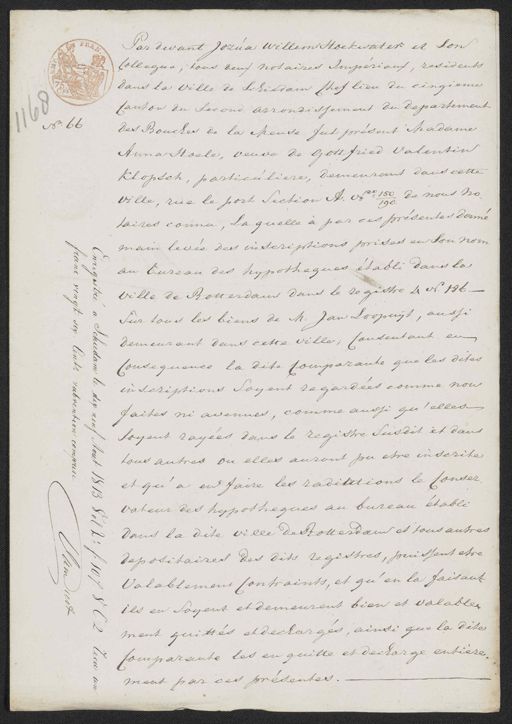 1168
No 66
Par devant Jozua Willem Hoekwater et Son
Collegue, tous deux notaires Imperiaux, residents
dans la Ville de Schiedam Chef lieu du cinquieme
Canton du Second arrondissement du departement
des Bouches de la Meuse fut présent Madame
Anna Roele, veuve de Gottfried Valentin
Klopsch, particuliere, demeurant dans cette
ville, rue le port Section A. No 150/190 de nous No
taires connue, Laquelle a par ces présentes donné
main levée des inscriptions prises en Son nom
au bureau des hypotheques établi dans la
Ville de Rotterdam dans le registre 4 No 196 —
Sur tous les biens de M. Jan Loopuijt, aussi
demeurant dans cette ville, Consentant en
Consequence la dite Comparante que les dites
inscriptions Soyent regardées comme non
faites ni avenues, comme aussi qu'elles
Soyent rayées dans le registre Susdit et dans
tous autres ou elles auront pu etre inscrite
et qu'a en faire les raditations le Conser
vateur des hypotheques au bureau établi
dans la dite ville de Rotterdam et tous autres
depositaires des dits registres, puissent etre
Valablement Contraints, et qu'en la faisant
ils en Soyent et demeurent bien et valable
ment quittés et dechargés, ainsi que la dite
Comparante les en quitte et decharge entiere.
ment par ces présentes. —
Enregistré a Schiedam le dix neuf Aout 1813 fol 107 Vo C 2 Reçu un
franc vingt six cents subvention comprise